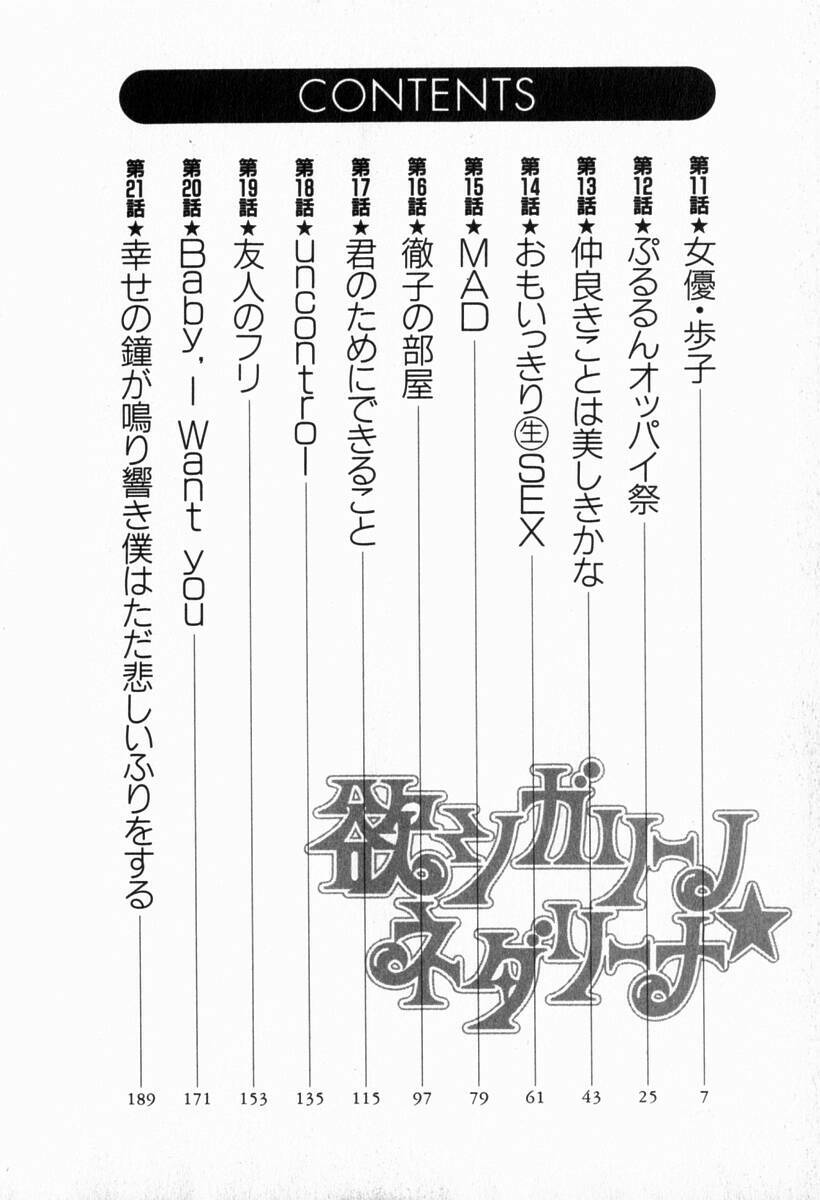 CONTENTS
第11話★女優・歩子 7
第12話★ぷるるんオッパイ祭 25
第13話★仲良きことは美しきかな 43
第14話★おもいっきり㊤SEX 61
第15話★MAD 79
第16話★徹子の部屋 97
第17話★君のためにできること 115
第18話★uncontrol 135
第19話★友人のフリ 153
第20話★Baby, I Want you 171
第21話★幸せの鐘が鳴り響き僕はただ悲しいふりをする 189
欲シガリーノ
ネダリーナ★